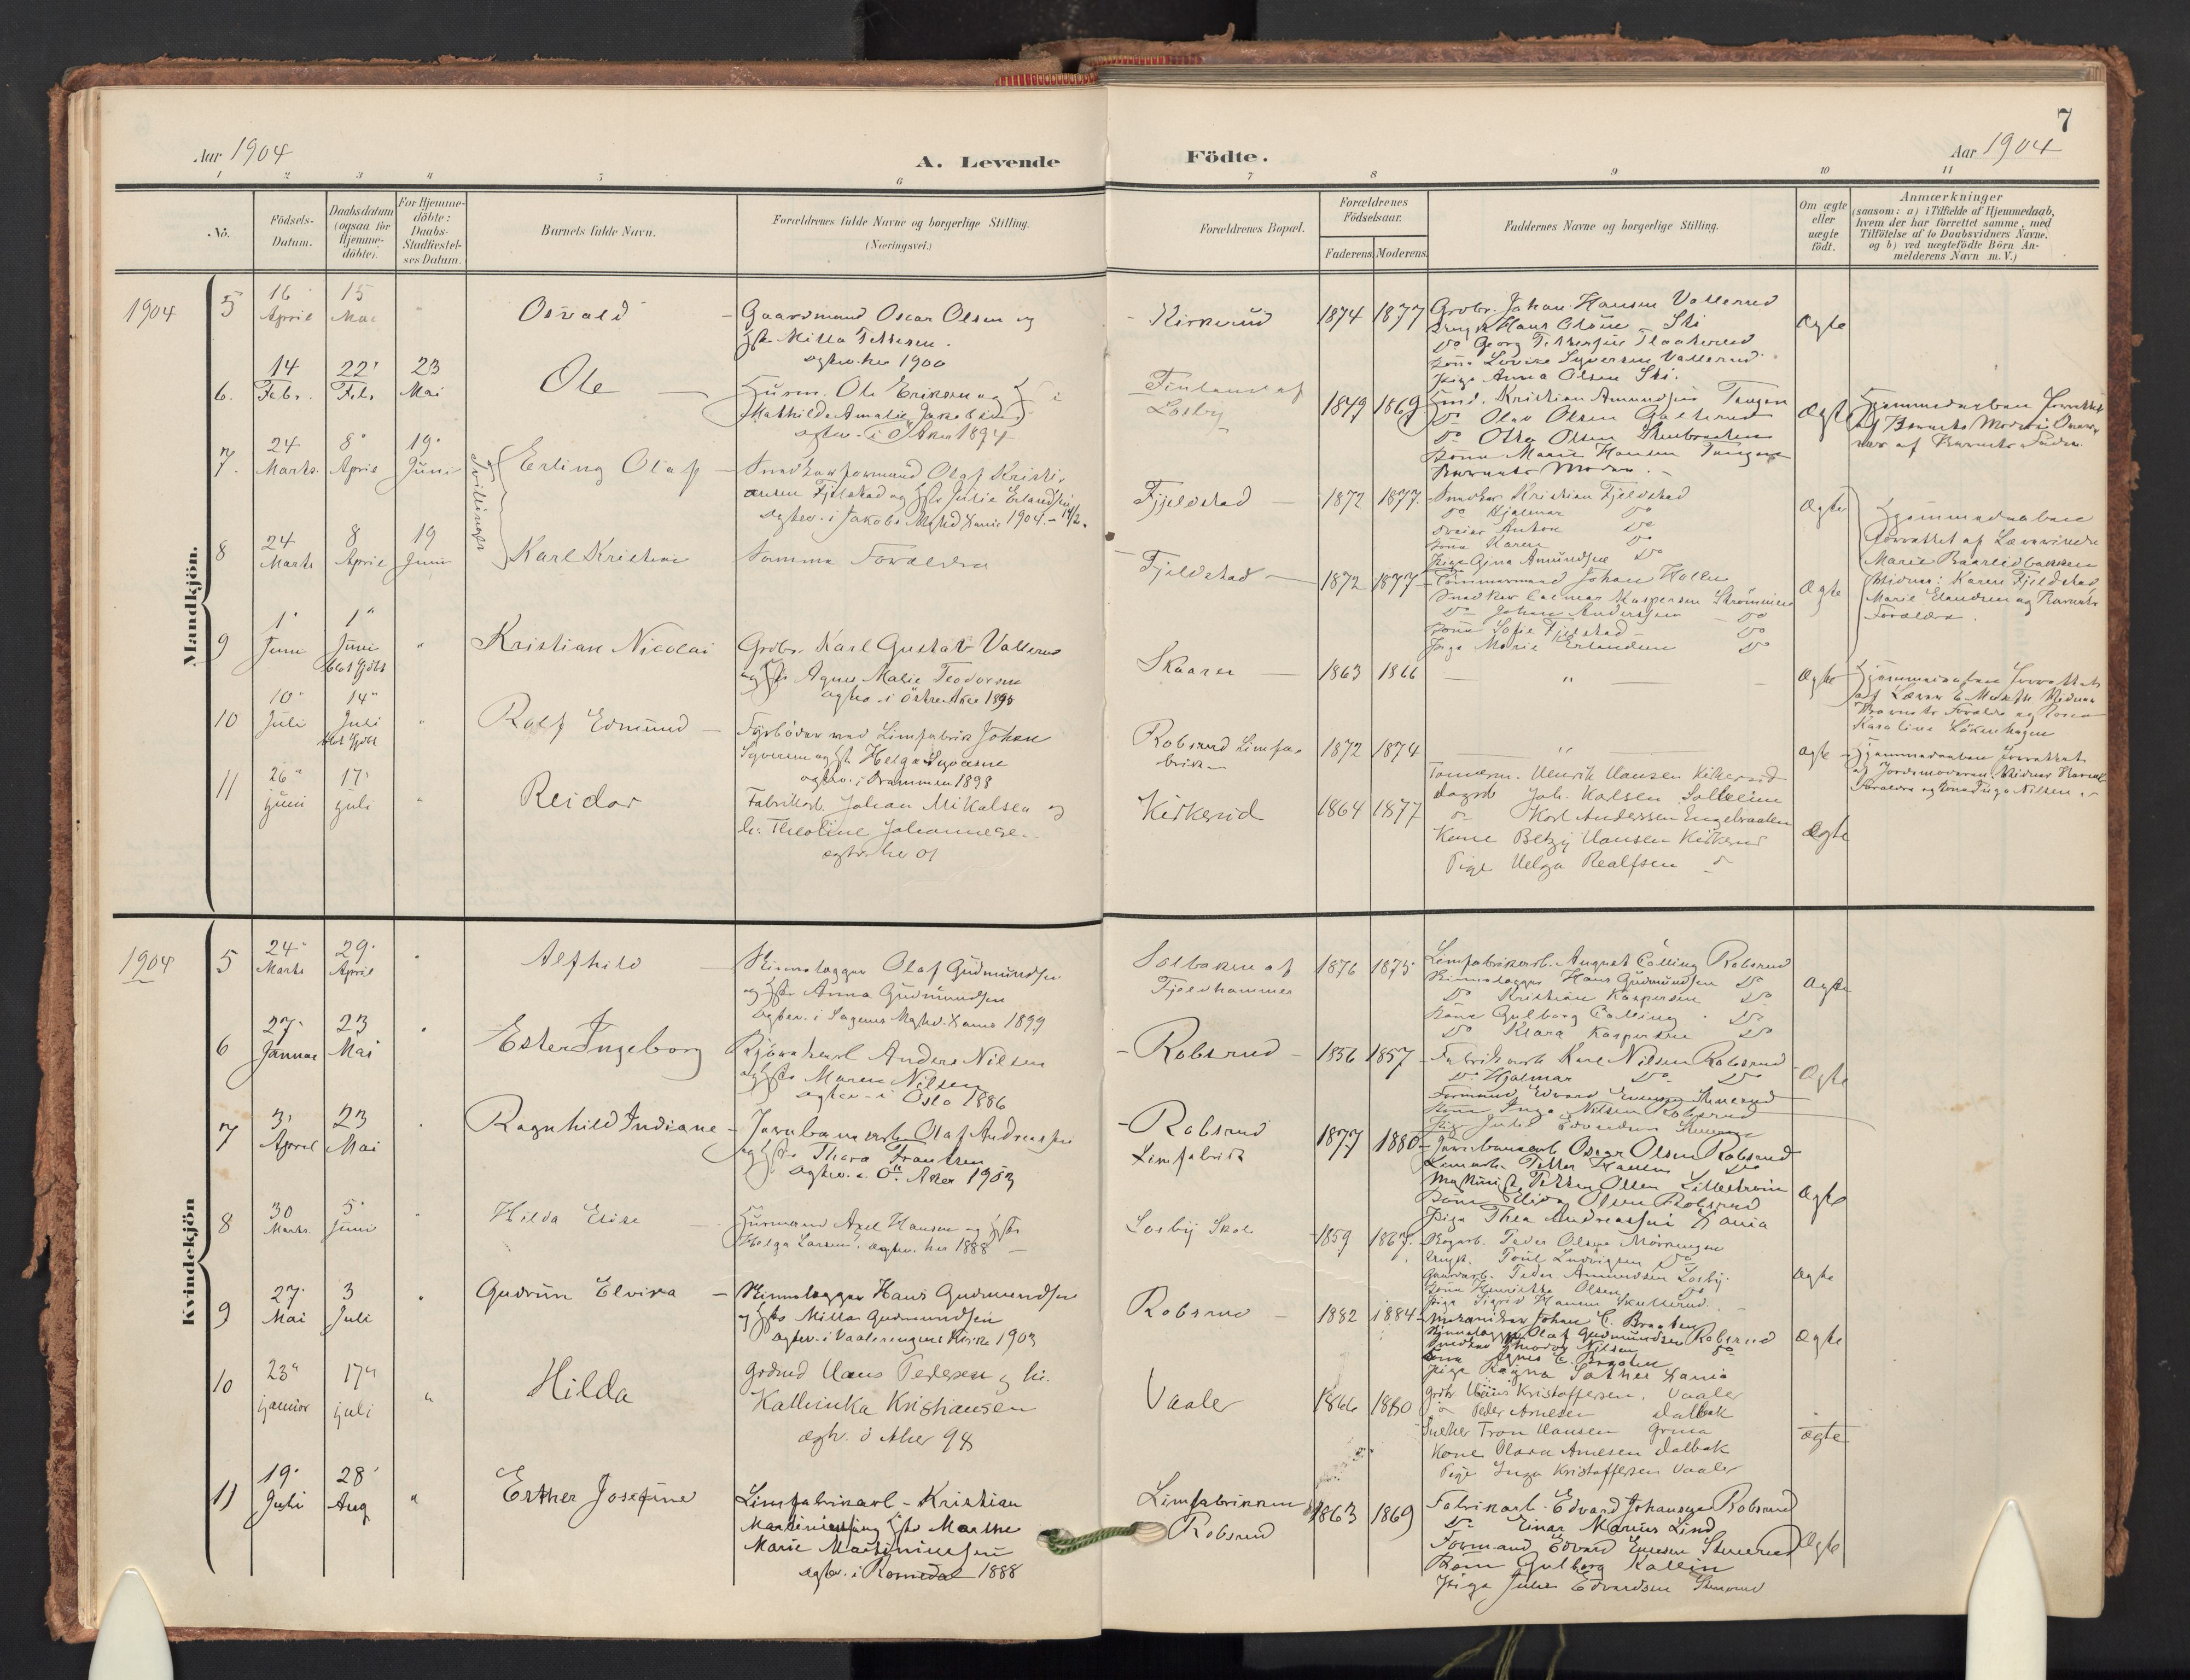 7
Aar 1904
A. Levende
Födte.
Aar 1904
1 2 3 4 5 6 7 8 9 10 11
No.
Födsels-Datum.
Daabsdatum (ogsaa for Hjemme-döbte).
For Hjemme-döbte: Daabs-Stadfæstel-ses Datum.
Barnets fulde Navn.
Forældrenes fulde Navne og borgerlige Stilling.
(Næringsvei.)
Forældrenes Bopæl.
Forældrenes Födselsaar.
Faderens. Moderens.
Faddernes Navne og borgerlige Stilling.
Om ægte eller uægte födt.
Anmærkninger
(saasom: a) i Tilfælde af Hjemmedaab,
hvem der har forrettet samme, med
Tilföielse af to Daabsvidners Navne.
og b) ved uægtefödte Börn An-
melderens Navn m. V.)
Mandkjön.
1904
5
16 April
15 Mai
Osvald
Gaardmand Oscar Olsen og
Hst. Milla Pettersen.
ægtev. her 1900
Kirkerud
1874 1877
Grbr. Johan Hansen Vallerud
Hans Olsen Ski
Do Georg Pettersen
Kone Lovise Syversen Vallerud
Pige Anna Olsen Ski.
Ægte
6.
14 Febr.
22 Feb.
23 Mai
Ole
Husm. Ole Eriksen og H
Mathilde Amalie Jakobsen
ægtev. i Ö Aker 1894
Finland af
Losby
1879 1869
Kristian Amundsen Tangen
Do Olav Olsen
Do Otto Olsen
Kone Marie Hansen Tangen
Barnets Moder.
Ægte
Hjemmedaaben forrettet
af Barnets Moder
af Barnets Fader.
Tvillinger
7.
24 Marts.
8 April
19 Juni
Erling Olaf
Snedkerformand Olaf Kristi-
ansen Fjelstad og Hst. Julie Erlandsen
ægtev. i Jakobs Mghd Xania 1904 - 14/2.
Fjeldstad
1872 1877
Snedker Kristian Fjeldstad
Do Hjalmar Do
Dreier Anton Do
Kone Karen Do
Pige Gina Amundsen Do
Ægte
Hjemmedaaben
forrettet af Lærerinde
Marie
Vidner: Karen Fjeldstad
Marie Erlandsen og Barnets
Forældre.
8
24 Marts
8 April
19 Juni
Karl Kristian
Samme Forældre
Fjeldstad
1872 1877
Tömmermand Johan Holm
Snedker Hjalmar Kaspersen Strömmen
Do Johan Anderssen Do
Kone Sofie Fjelstad Do
Pige Marie Erlandsen Do
Ægte
9
1 Juni
1 Juni
blot Hjdbt
"
Kristian Nicolai
Grbr. Karl Gustav Vallerud
og Hst. Agnes Malie Teodorsen
ægtev. i Östre Aker 1890
Skaarer
1863 1866
"
Ægte
Hjemmedaaben forrettet
af Lærer E. Vidner
Barnets Forældre og
Karoline Lökenhagen
10
10 Juli
14 Juli
blot Hjdbt
"
Rolf Edmund
Fyrböder ved Limfabrik Johan
Syversen og Hst. Helga Syversen
ægtev. i Drammen 1898
Robsrud Limfa-
brik
1872 1874
"
ægte
Hjemmedaaben forrettet
af Jordmoderen. Vidner Barnets
Forældre og Nilsen
11
26 juni
17 juli
"
Reidar
Fabrikarb. Johan Mikalsen og
h. Theoline Johannesen
ægtv. her 01
Kirkerud
1864 1877
Tömerm. Henrik Hansen Kirkerud
dagarb Joh. Karlsen Solheim
do Karl Anderssen Engelsraaten
Kone Betzy Hansen Kirkerud
Pige Helga Realfsen do
Ægte
Kvindekjön
1904
5
24 Marts
29 April
"
Alfhild
Skinnelægger Olaf Gudmundsen
og Hst. Anna Gudmundsen
ægtev. i Sagenes Mghd. Xania 1899
Solbakken af
Fjeldhammer
1876 1875
Limfabrikarb. August Calling Robsrud
Skinnelægger Hans Gudmundsen Do
Do Kristian Kaspersen Do
Kone Gulborg Calling Do
Do Klara Kaspersen Do
Ægte
6
27 Januar
23 Mai
"
Ester Ingeborg
Anders Nilsen
og Hst. Maren Nilsen
ægtev. i Oslo 1886
Robsrud
1856 1857
Fabrikarb Karl Nilsen Robsrud
Do Hjalmar Do Do
Formand Edvard Stenerud
Kone Inga Nilsen Robsrud
Pige Julie Edvardsen
Ægte
7
3 April
23 Mai
"
Ragnhild Indiane
Jernbanearb. Olaf Andreassen
og Hst. Thora Frantzen
ægtev. i Ö. Aker 1903
Robsrud
Limfabrik
1877 1880
Jernbanearb Oscar Olsen Robsrud
Limarb. Petter Hansen Do
Maskinist Petter Olsen Lilleström
Kone Elida Olsen Robsrud
Pige Thea Andreassen Xania
Ægte
8
30 Marts.
5 Juni
"
Hilda Elise
Husmand Axel Hansen og Hst.
Helga Larsen. ægtev. her 1888
Losby Skole
1859 1867
Skogarb. Peder Olsen
Ludvigsen Do
Gaardarb. Peder Amundsen Losby.
Kone Henriette Olsen Do
Pige Sigrid Hansen Skullerud.
Ægte
9
27 Mai
3 Juli
"
Gudrun Elvira
Skinnelægger Hans Gudmundsen
og Hst. Milla Gudmundsen
ægtev. i Vaalerengens Kirke 1903
Robsrud
1882 1884
Mekaniker Johan E. Braaten
Skinnelægger Olaf Gudmundsen Robsrud
Snedker Theodor Nilsen Do
Kone Agnes E. Braaten
Pige Ragna Sather Xania
Ægte
10
23 januar
17 juli
"
Hilda
Grdmd Hans Pedersen og h.
Kathinka Kristiansen
ægtv. Ö Aker 98
Vaaler
1866 1880
Grbr Hans Kristoffersen, Vaaler
do Peder Arnesen Dalbak
Snedker Tron Hansen Grina
Kone Olava Arnesen Dalbak
Pige Inga Kristoffersen Vaaler
ægte
11
19 Juli
28 Aug
"
Esther Josefine
Limfabrikarb - Kristian
Martiniussen og Hst. Marthe
Marie Martiniussen
ægtev. i Romedal 1888
Limfabrikken
Robsrud
1863 1869
Fabrikarb. Edvard Johansen Robsrud
Do Einar Marius Lind
Formand Edvard Stenerud
Kone Gulborg Kallin
Pige Julie Edvardsen Stenerud
Ægte